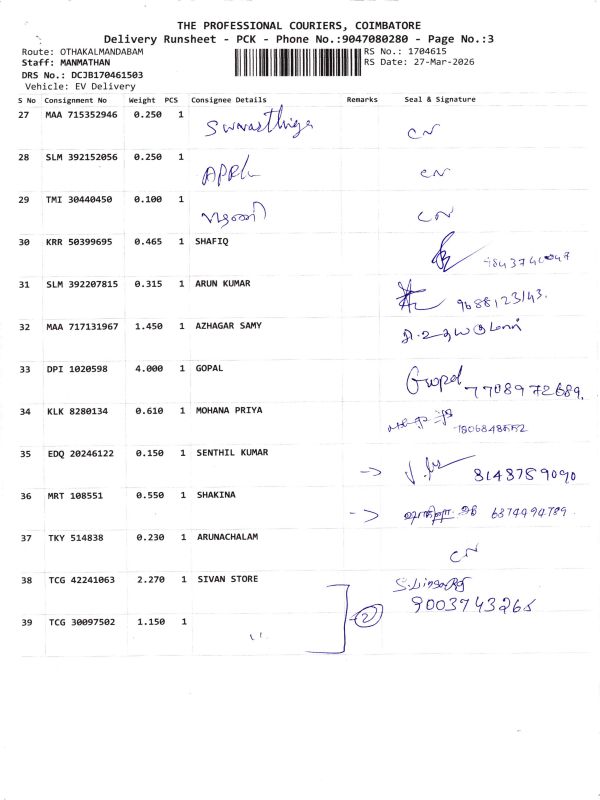 THE PROFESSIONAL COURIERS, COIMBATORE
Delivery Runsheet - PCK - Phone No.:9047080280 - Page No.:3
Route: OTHAKALMANDABAM RS No.: 1704615
Staff: MANMATHAN RS Date: 27-Mar-2026
DRS No.: DCJB170461503
Vehicle: EV Delivery
S No Consignment No Weight PCS Consignee Details Remarks Seal & Signature
27 MAA 715352946 0.250 1 CN
28 SLM 392152056 0.250 1 CN
29 TMI 30440450 0.100 1 CN
30 KRR 50399695 0.465 1 SHAFIQ
31 SLM 392207815 0.315 1 ARUN KUMAR 9688123143.
32 MAA 717131967 1.450 1 AZHAGAR SAMY
33 DPI 1020598 4.000 1 GOPAL Gopal 7708972689.
34 KLK 8280134 0.610 1 MOHANA PRIYA
35 EDQ 20246122 0.150 1 SENTHIL KUMAR 8148759090
36 MRT 108551 0.550 1 SHAKINA 6374494789
37 TKY 514838 0.230 1 ARUNACHALAM CN
38 TCG 42241063 2.270 1 SIVAN STORE
9003743265
39 TCG 30097502 1.150 1 2